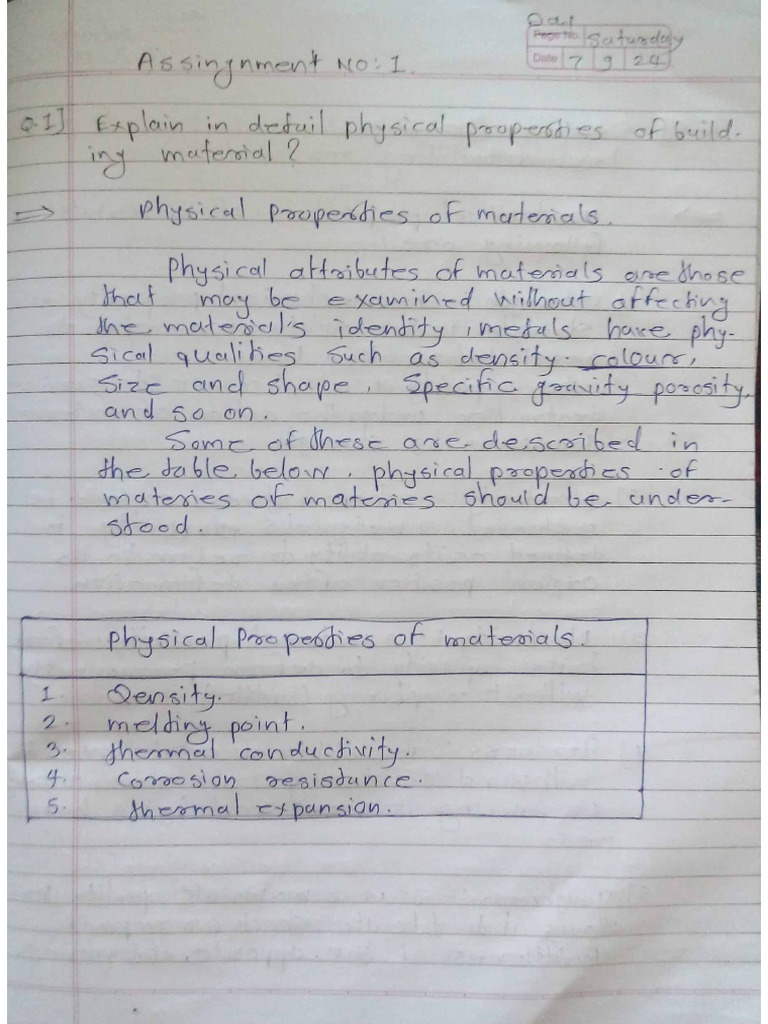 Page No. Saturday
Date 7 9 24
Assingnment NO: 1.
Q.1] Explain in detail physical properties of build-
ing material?
⇒ physical properties of materials.
physical attributes of materials are those
that may be examined without affecting
the material's identity, metals have phy-
sical qualities such as density. colour,
size and shape, specific gravity porosity,
and so on.
Some of these are described in
the table below. physical properties of
materies of materies should be under-
stood.
physical properties of materials.
1 Density.
2. melting point.
3. thermal conductivity.
4. corrosion resistance.
5. thermal expansion.